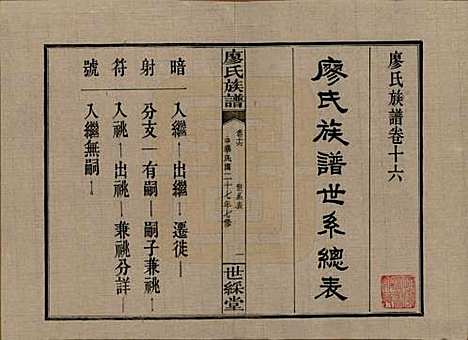 廖氏族譜卷十六
廖氏族譜世系總表
廖氏族譜
卷十六
世系表
中華民國二十七年七修
一
世綵堂
暗 入繼 出繼 遷徙
射 分支 一有嗣 嗣子兼祧
符 入祧 出祧 兼祧分詳
號 入繼無嗣